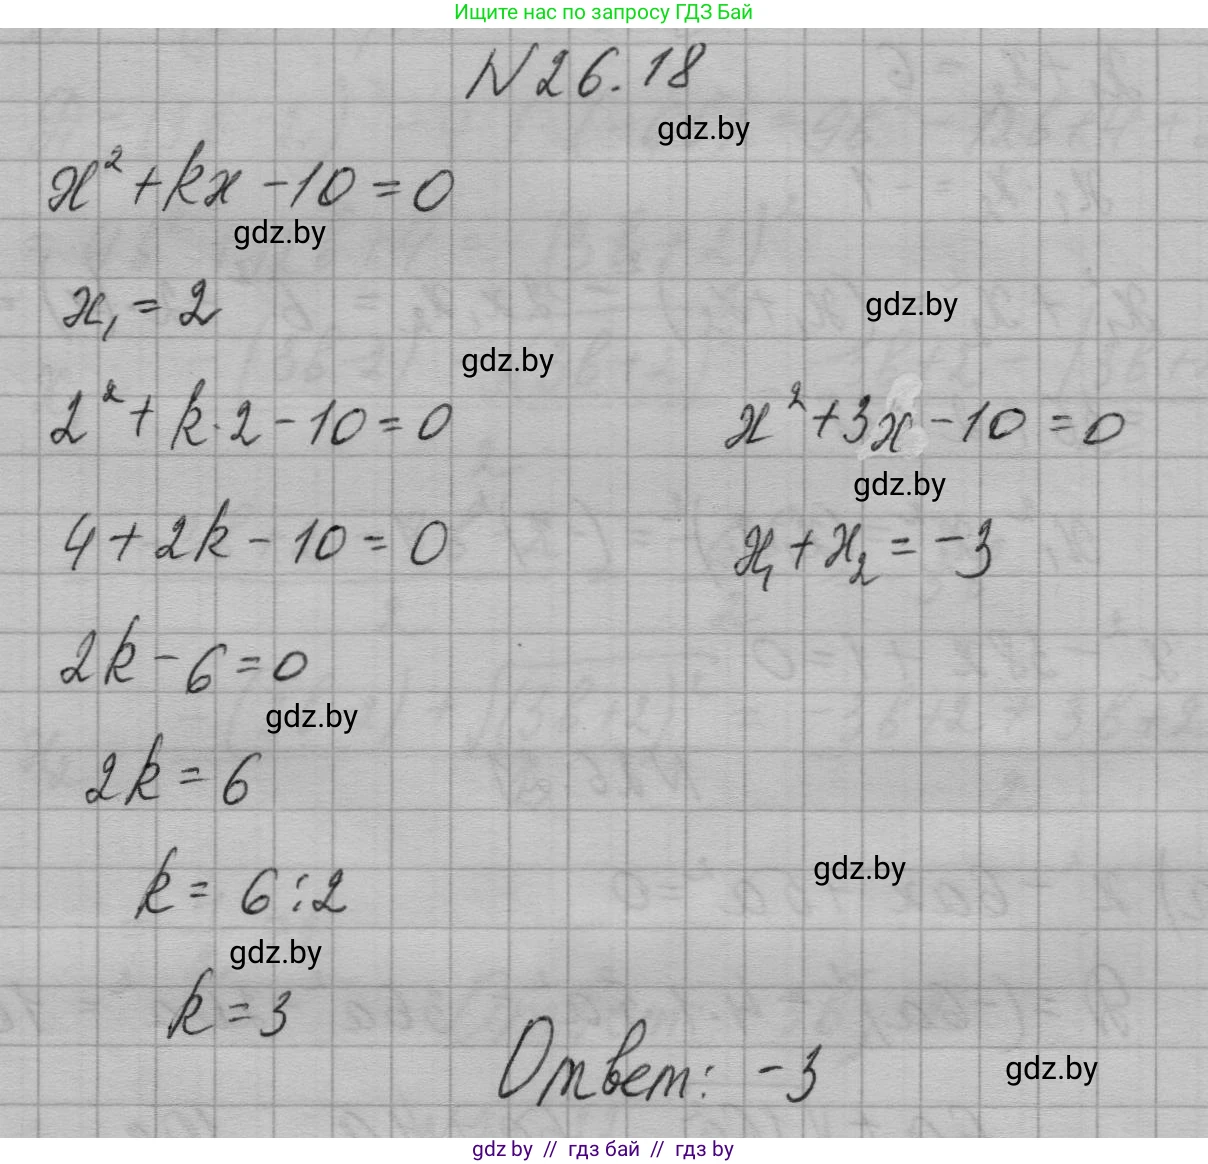 Ищите нас по запросу ГДЗ Бай
N 26.18
gdz.by
x² + kx - 10 = 0
gdz.by
x₁ = 2
gdz.by
gdz.by
2² + k · 2 - 10 = 0
x² + 3x - 10 = 0
gdz.by
4 + 2k - 10 = 0
x₁ + x₂ = -3
2k - 6 = 0
gdz.by
2k = 6
k = 6 : 2
gdz.by
gdz.by
k = 3
Ответ: -3
gdz.by
gdz by // гдз бай // гдз by